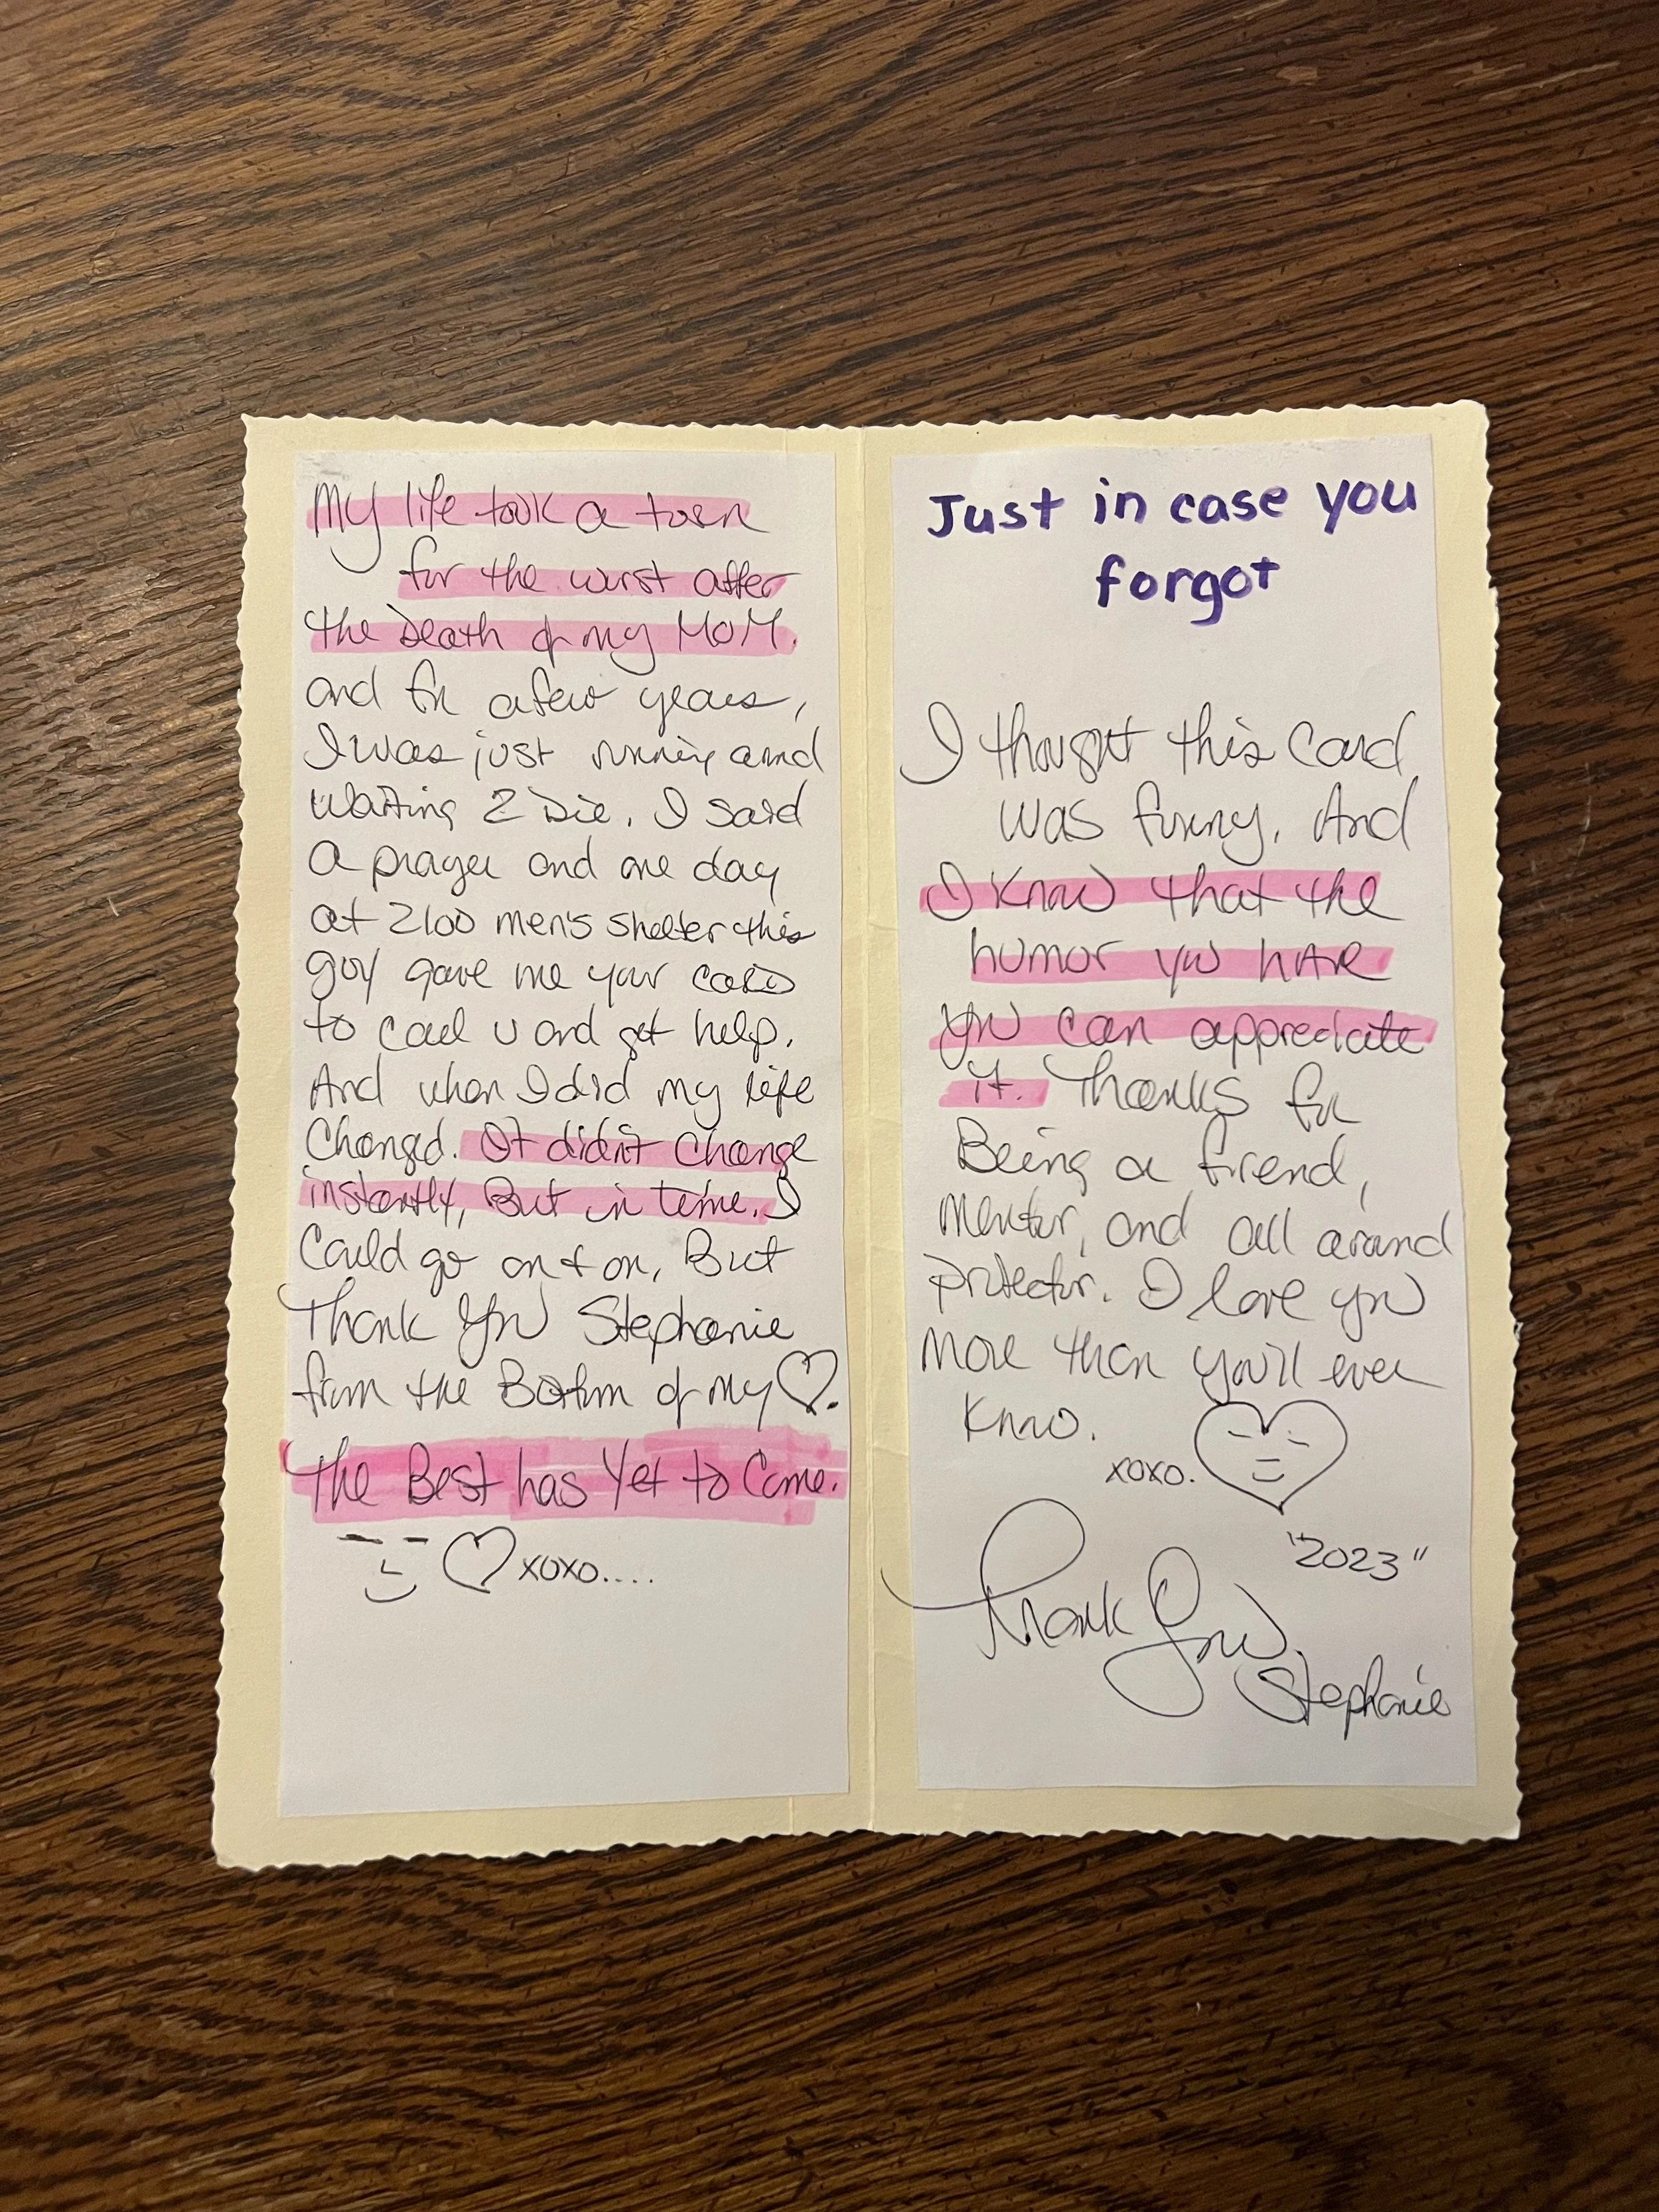 My life took a turn
for the worst after
the Death of my MOM.
and for a few years,
I was just running and
waiting 2 Die. I said
a prayer and one day
at 2100 men's shelter this
guy gave me your card
to call u and get help.
And when I did my life
Changed. It didn't change
instantly, But in time. I
Could go on + on, But
Thank you Stephanie
from the Bottom of my ♡.
The Best has Yet to Come.
♡ xoxo....
Just in case you
forgot
I thought this card
was funny. And
I know that the
humor you have
you can appreciate
it. Thanks for
Being a friend,
mentor, and all around
protector. I love you
more than you'll ever
know.
xoxo.
"2023"
Thank You
Stephanie